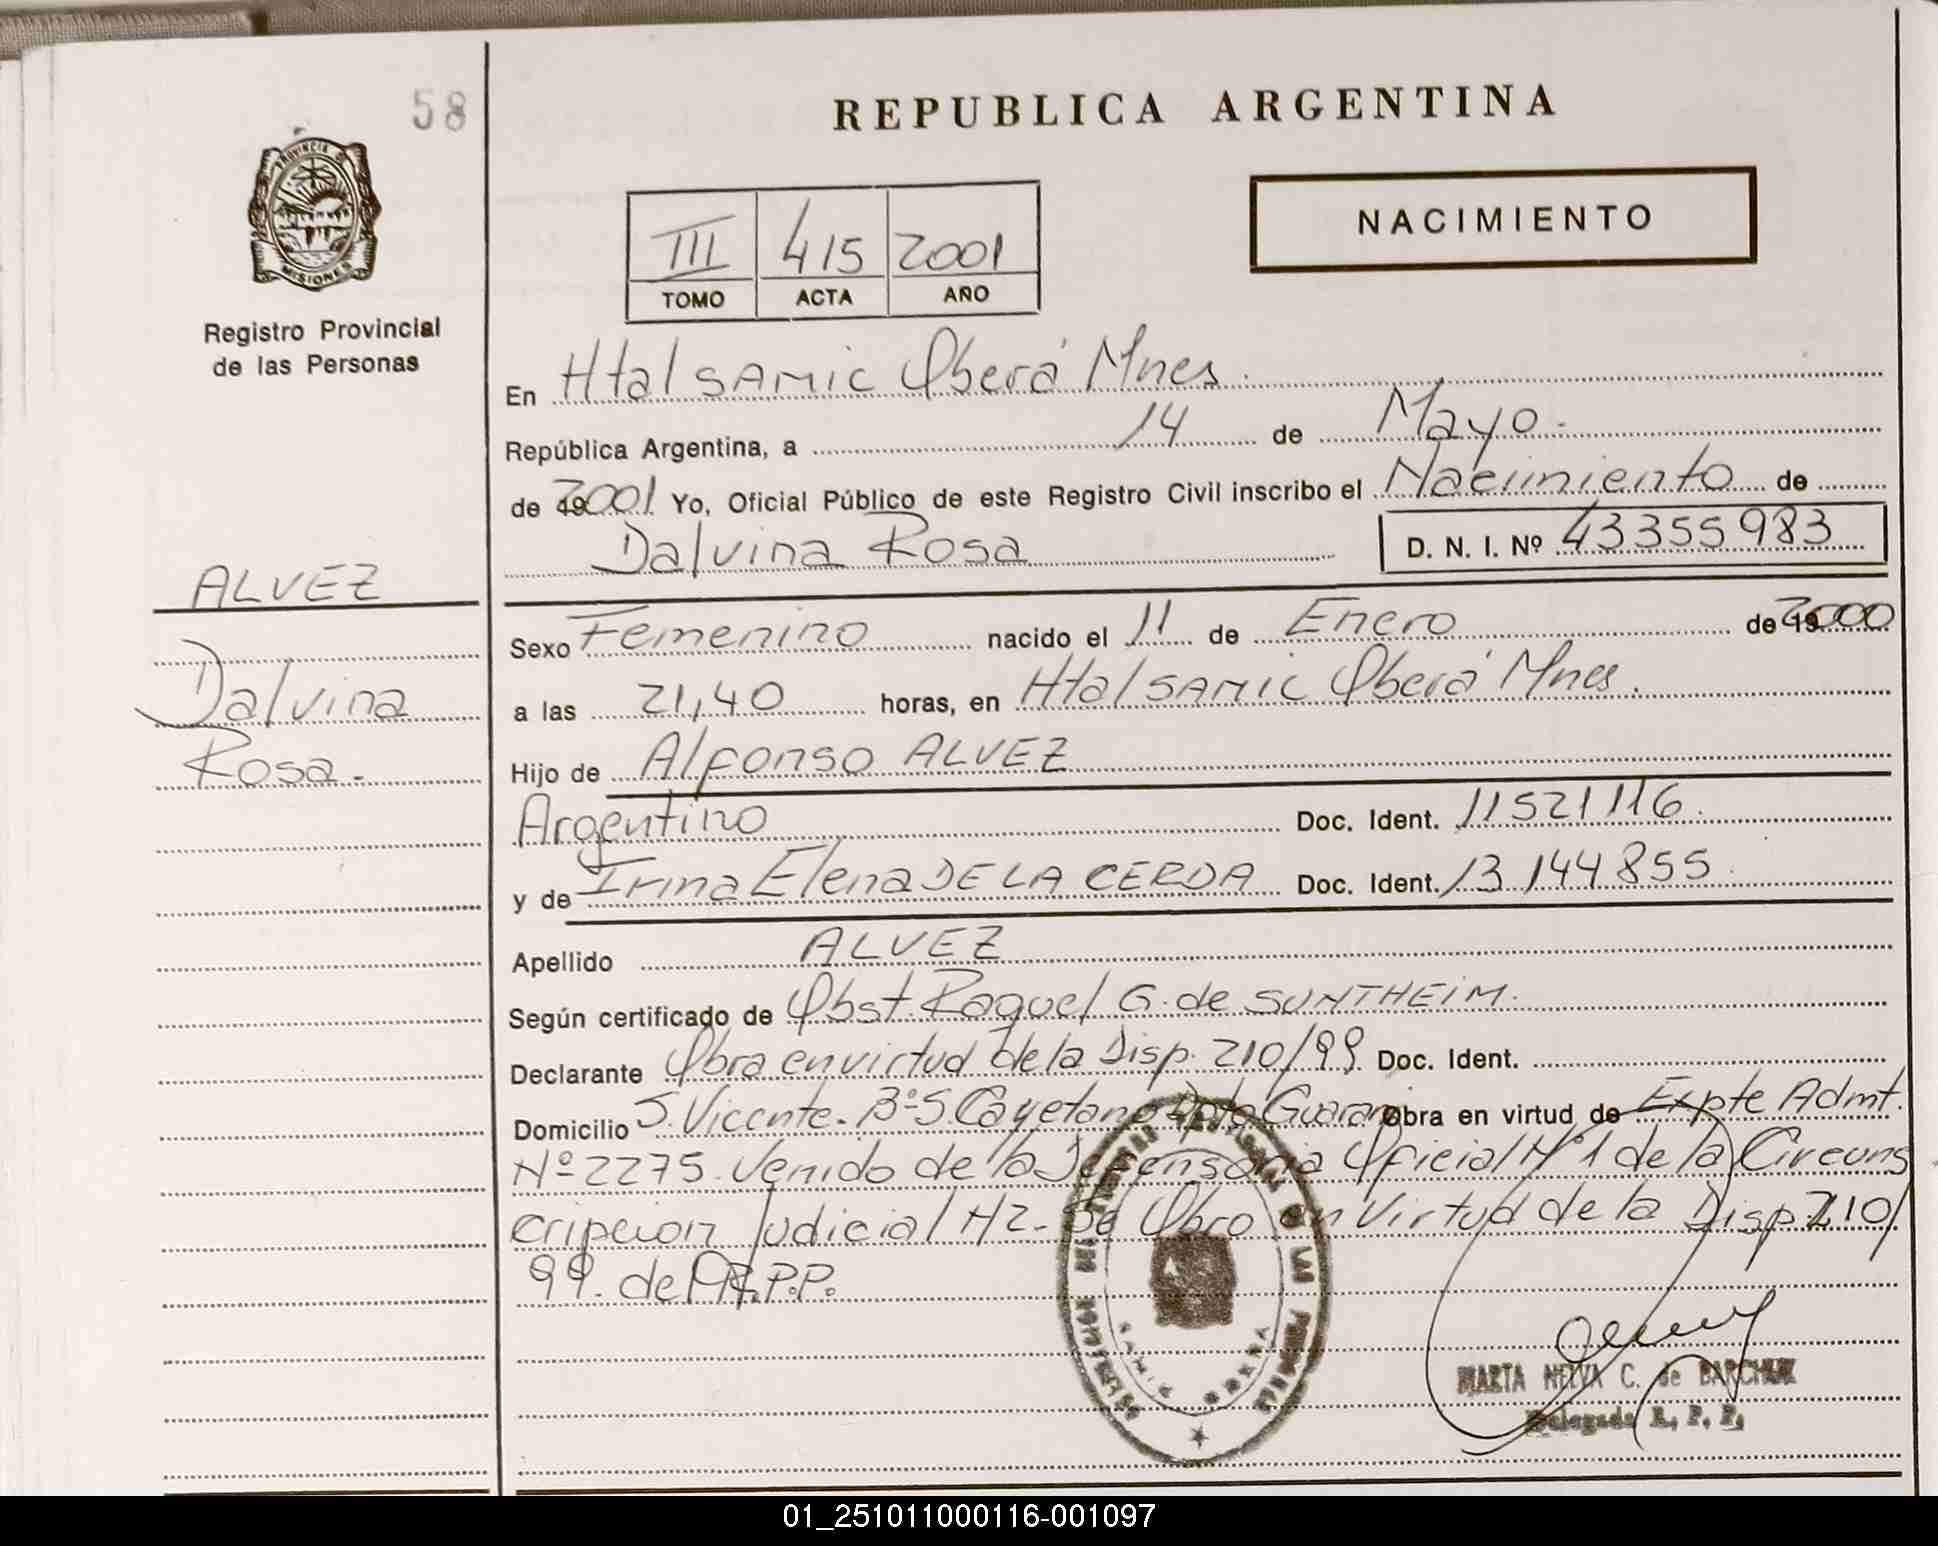 58
REPUBLICA ARGENTINA
PROVINCIA DE
MISIONES
Registro Provincial
de las Personas
NACIMIENTO
III 415 2001
TOMO ACTA AÑO
En Htal SAMIC Oberá Mnes.
República Argentina, a 14 de Mayo.
de 2001 Yo, Oficial Público de este Registro Civil inscribo el Nacimiento de
Dalvina Rosa D. N. I. Nº 43355983
ALVEZ
Dalvina
Rosa.-
Sexo Femenino nacido el 11 de Enero de 2000
a las 21,40 horas, en Htal SAMIC Oberá Mnes.
Hijo de Alfonso ALVEZ
Argentino Doc. Ident. 11521116.
y de Irma Elena DE LA CERDA Doc. Ident. 13.144855.
Apellido ALVEZ
Según certificado de Obst. Raquel G. de SUNTHEIM.
Declarante Obra en virtud de la Disp. 210/99. Doc. Ident.
Domicilio S. Vicente. Bº S. Cayetano Dpto Guarani Obra en virtud de Expte Admt.
Nº 2275. Venido de la Defensoria Oficial Nº1 de la Circuns
cripcion Judicial N2- Se Obro en Virtud de la Disp 210/
99. del R.P.P.
SAMIC OBERA
MARTA NELVA C. de BARCHUK
Delegada R. P. P.
01_251011000116-001097